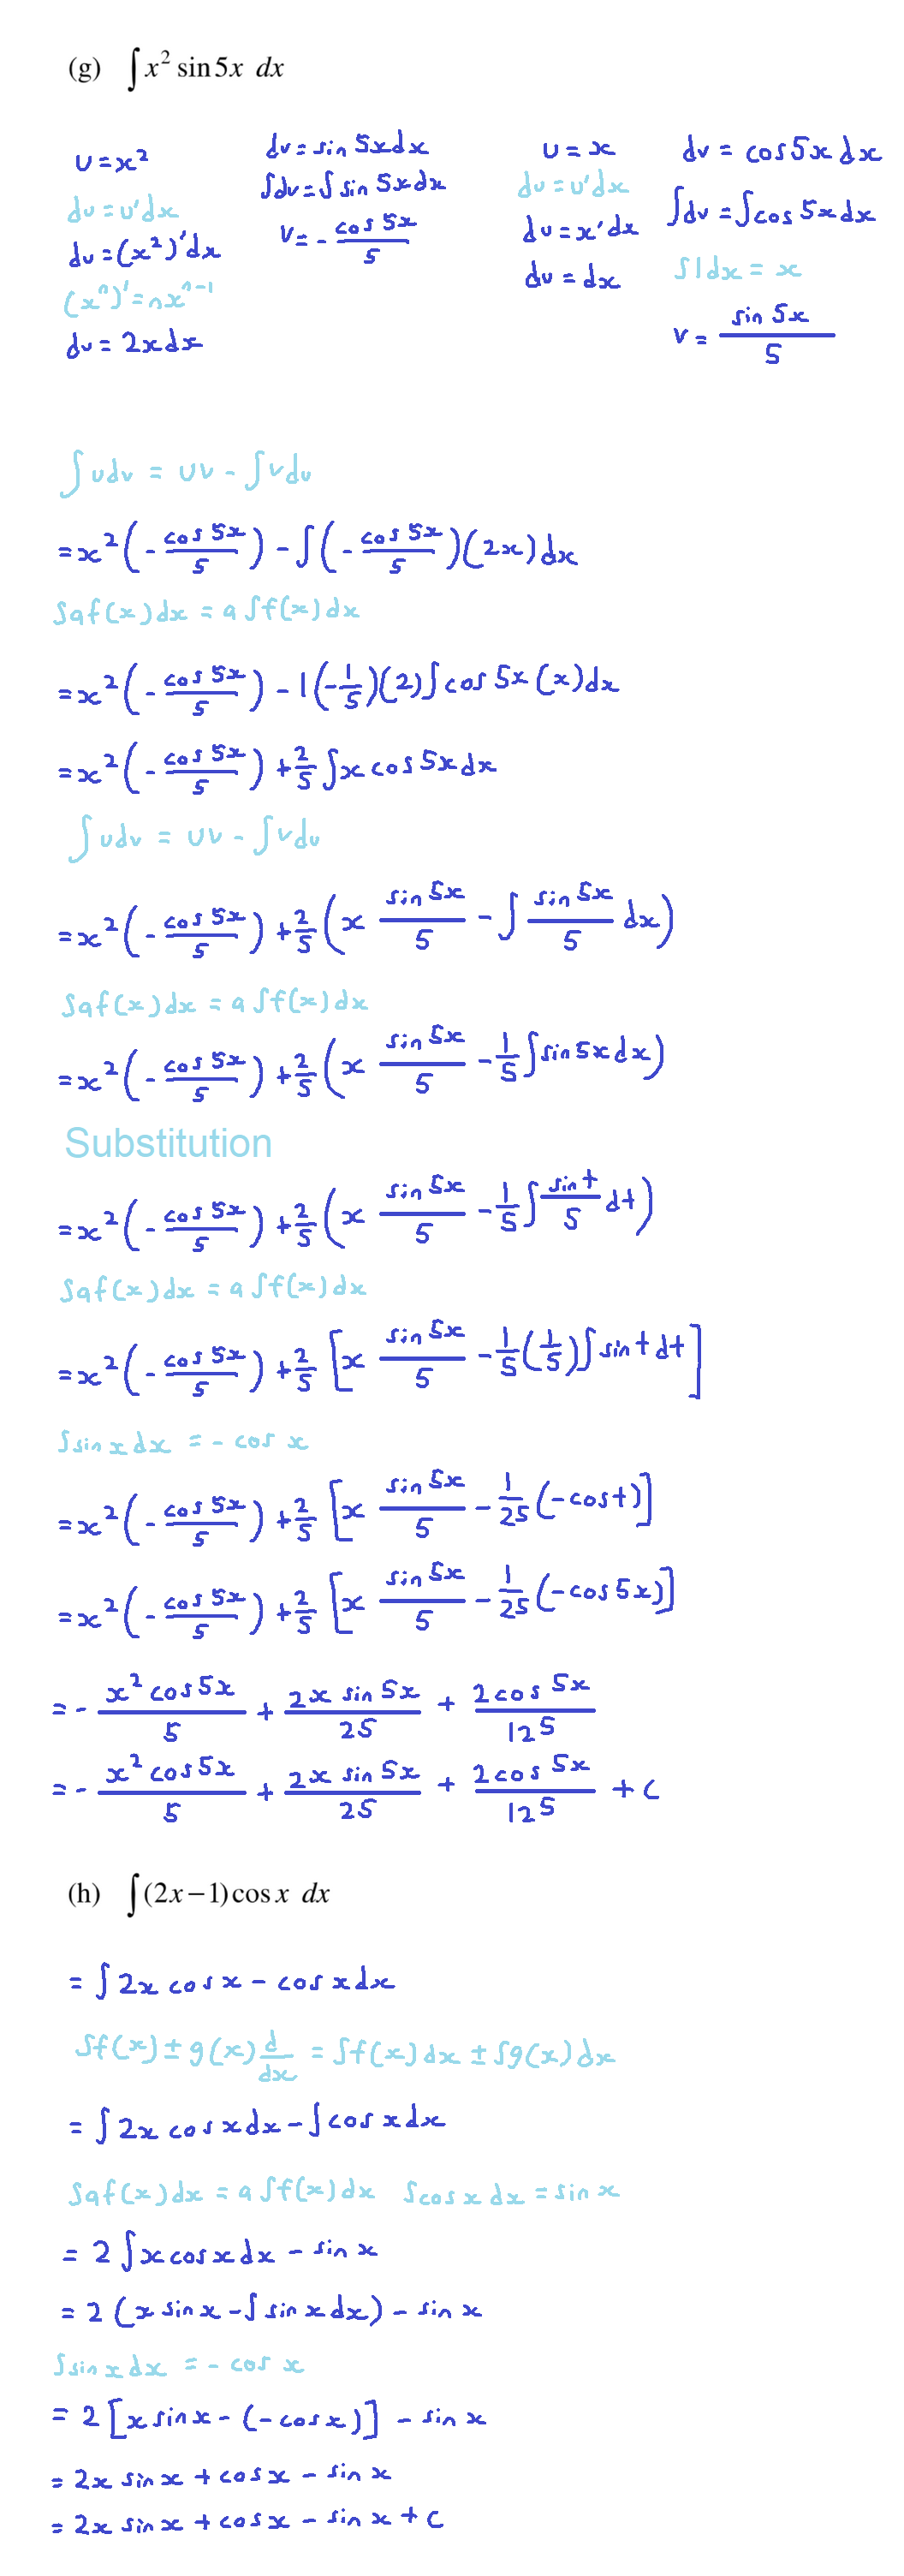 (g) ∫ x² sin 5x dx
u = x²
du = u'dx
du = (x²)'dx
(xⁿ)' = nxⁿ⁻¹
du = 2xdx
dv = sin 5xdx
∫dv = ∫ sin 5xdx
v = - cos 5x / 5
u = x
du = u'dx
du = x'dx
du = dx
dv = cos5x dx
∫dv = ∫cos 5xdx
∫1dx = x
v = sin 5x / 5
∫udv = uv - ∫vdu
= x²(- cos 5x / 5) - ∫(- cos 5x / 5)(2x)dx
∫af(x)dx = a∫f(x)dx
= x²(- cos 5x / 5) - 1(-1/5)(2)∫cos 5x (x)dx
= x²(- cos 5x / 5) + 2/5 ∫x cos5xdx
∫udv = uv - ∫vdu
= x²(- cos 5x / 5) + 2/5 (x sin 5x / 5 - ∫ sin 5x / 5 dx)
∫af(x)dx = a∫f(x)dx
= x²(- cos 5x / 5) + 2/5 (x sin 5x / 5 - 1/5 ∫sin5xdx)
Substitution
= x²(- cos 5x / 5) + 2/5 (x sin 5x / 5 - 1/5 ∫ sin t / 5 dt)
∫af(x)dx = a∫f(x)dx
= x²(- cos 5x / 5) + 2/5 [x sin 5x / 5 - 1/5 (1/5)∫ sin t dt]
∫sin x dx = - cos x
= x²(- cos 5x / 5) + 2/5 [x sin 5x / 5 - 1/25 (-cos t)]
= x²(- cos 5x / 5) + 2/5 [x sin 5x / 5 - 1/25 (-cos 5x)]
= - x² cos5x / 5 + 2x sin 5x / 25 + 2 cos 5x / 125
= - x² cos5x / 5 + 2x sin 5x / 25 + 2 cos 5x / 125 + c
(h) ∫(2x-1)cos x dx
= ∫ 2x cos x - cos xdx
∫f(x) ± g(x) d/dx = ∫f(x)dx ± ∫g(x)dx
= ∫ 2x cos xdx - ∫cos xdx
∫af(x)dx = a∫f(x)dx ∫cos x dx = sin x
= 2 ∫x cos xdx - sin x
= 2 (x sin x - ∫ sin x dx) - sin x
∫sin x dx = - cos x
= 2 [x sin x - (-cos x)] - sin x
= 2x sin x + cos x - sin x
= 2x sin x + cos x - sin x + c